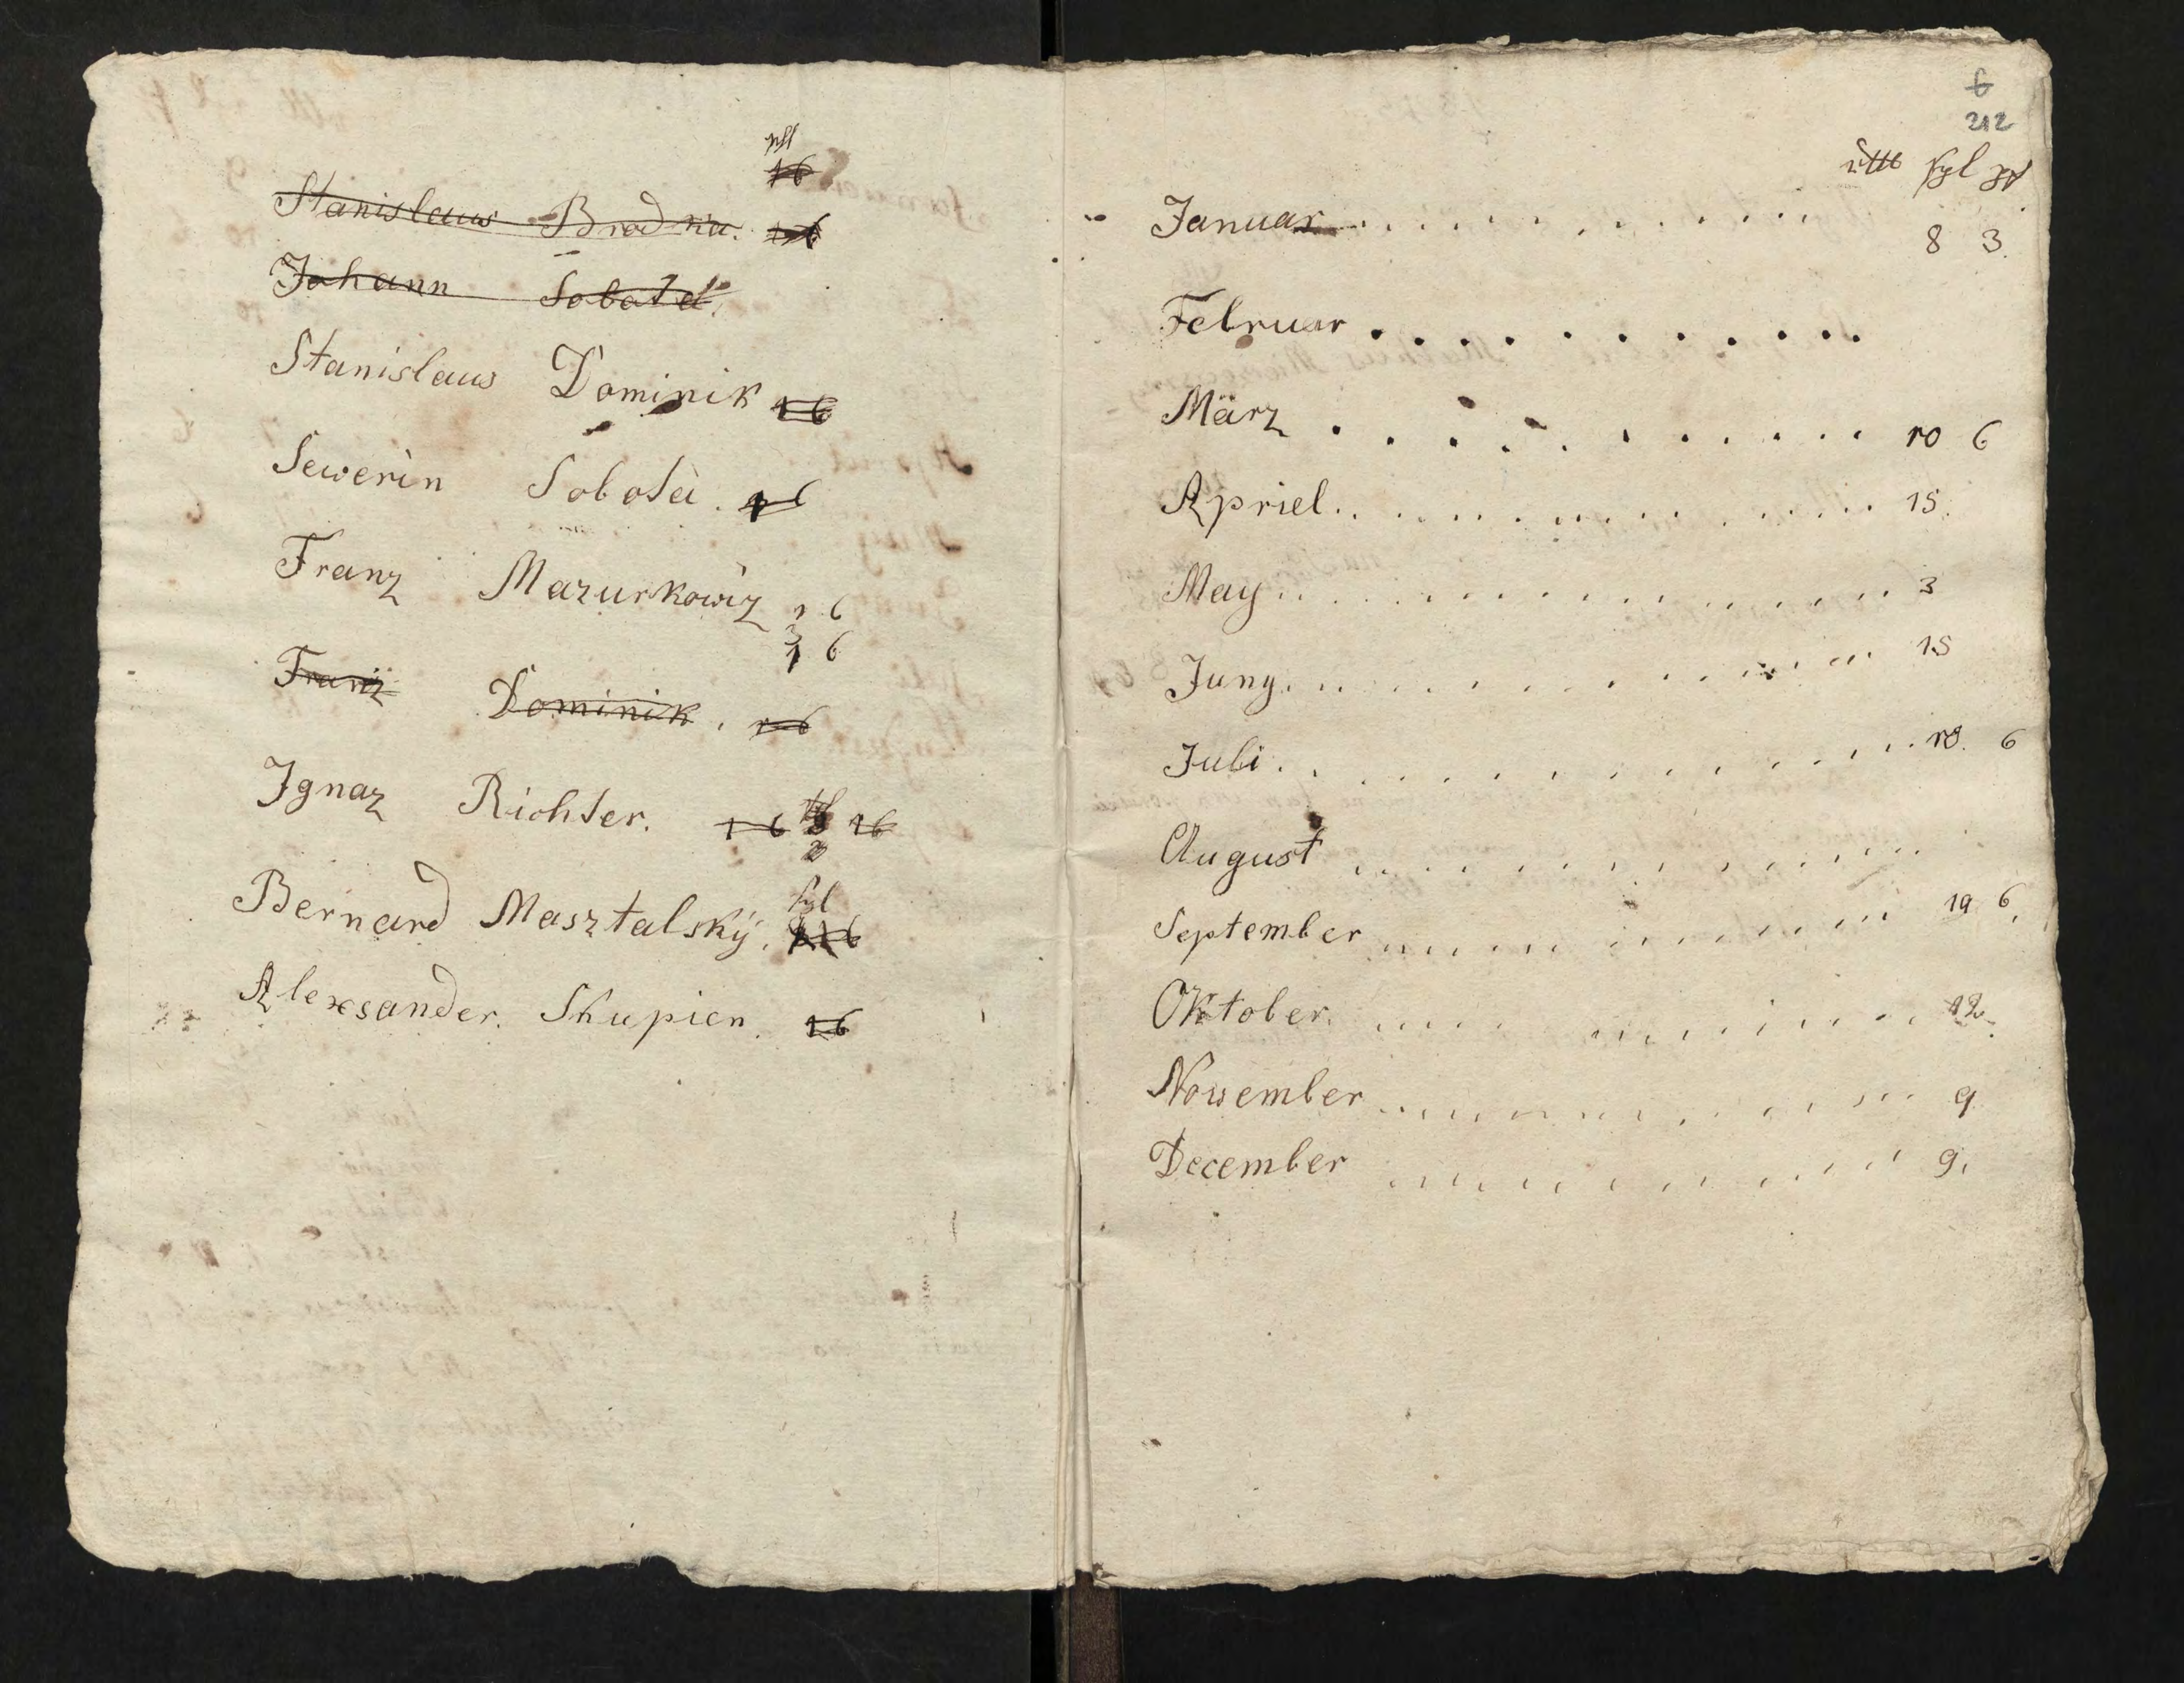 16
Stanislaus Brodka. 16
Johann Sobota.
Stanislaus Dominik 16
Sewerin Sobota. 16
Franz Mazurkowiz 1 6
3
1 6
Franz Dominik. 1 6
Ignaz Richter. 1 6 16
Bernard Masztalsky. sgl
Alexsander. Skupien. 16
6
212
rtll sgl
Januar
8 3.
Februar
März 10 6
Apriel 15
May 3
Juny 15
Juli 10. 6
August
September 19 6
Oktober 12
November 9
December 9